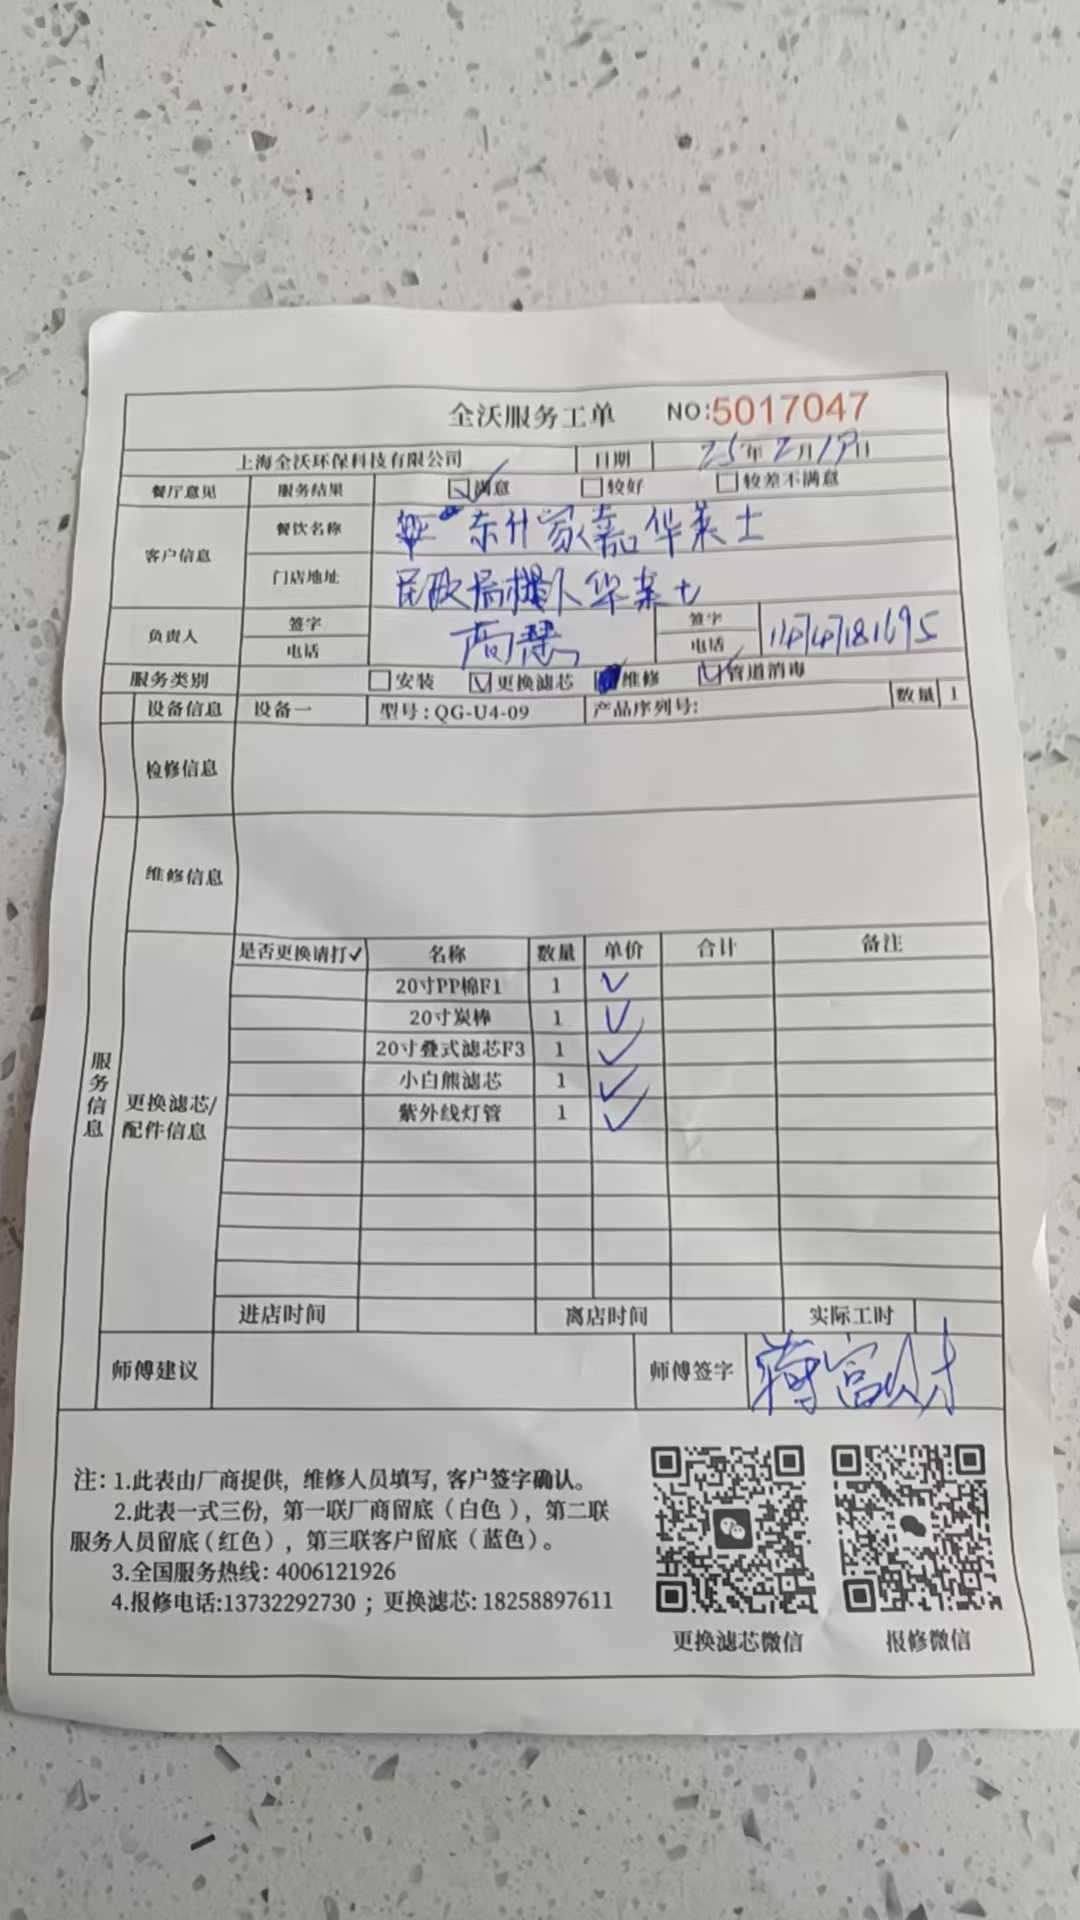 全沃服务工单 NO:5017047
上海全沃环保科技有限公司 日期 25年2月19日
餐厅意见 服务结果 满意 较好 较差不满意
客户信息 餐饮名称 东什家嘉华莱士
门店地址 民政局楼下华莱士
负责人 签字 签字
电话 电话
服务类别 安装 更换滤芯 维修 管道消毒
设备信息 设备一 型号:QG-U4-09 产品序列号: 数量 1
检修信息
维修信息
服务信息
更换滤芯/
配件信息
是否更换请打✓ 名称 数量 单价 合计 备注
20寸PP棉F1 1 ✓
20寸炭棒 1 ✓
20寸叠式滤芯F3 1 ✓
小白熊滤芯 1 ✓
紫外线灯管 1 ✓
进店时间 离店时间 实际工时
师傅建议 师傅签字 蒋富财
注: 1.此表由厂商提供, 维修人员填写, 客户签字确认。
2.此表一式三份, 第一联厂商留底 ( 白色 ), 第二联
服务人员留底 ( 红色 ) , 第三联客户留底 ( 蓝色 ) 。
3.全国服务热线: 4006121926
4.报修电话:13732292730 ; 更换滤芯: 18258897611
更换滤芯微信 报修微信